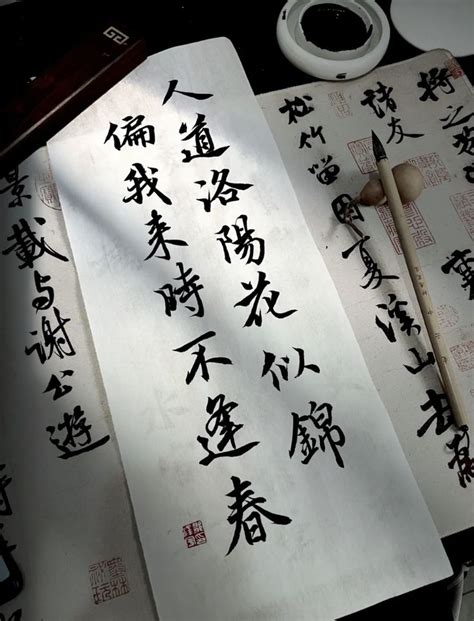 將之苕
諸友
松竹留因夏溪山去為
人道洛陽花似錦
偏我来時不逢春
景載与謝公遊